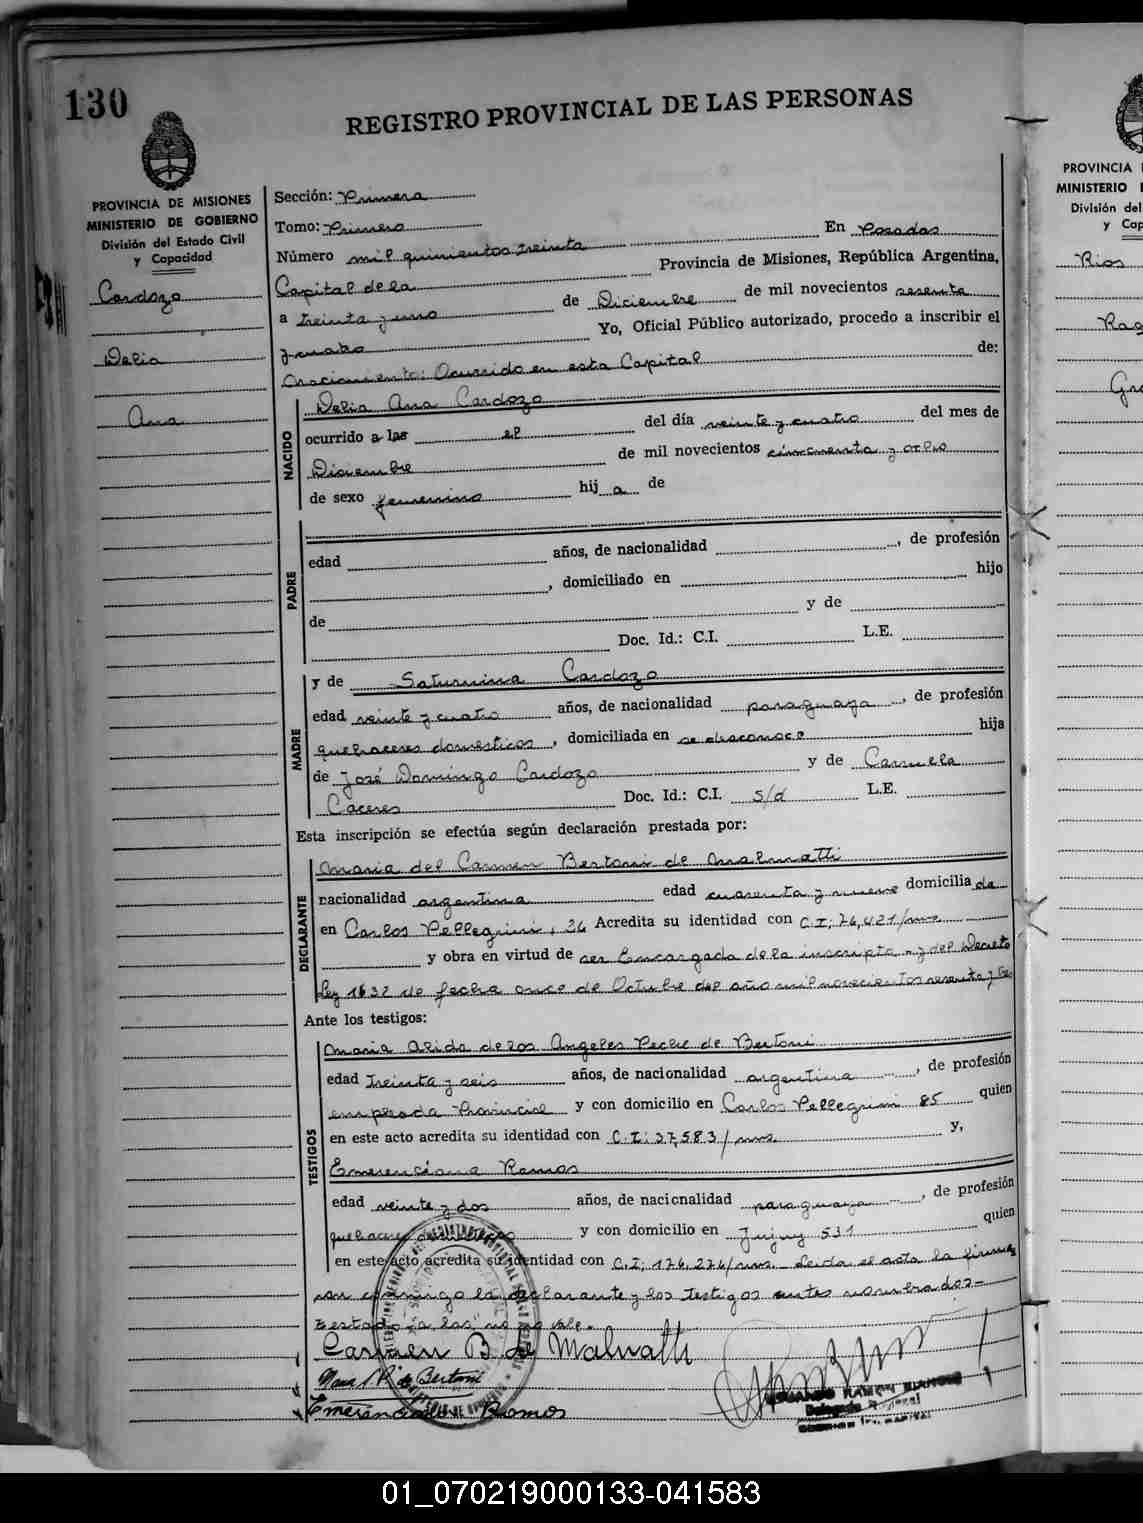 130
REGISTRO PROVINCIAL DE LAS PERSONAS
PROVINCIA DE MISIONES
MINISTERIO DE GOBIERNO
División del Estado Civil
y Capacidad
Cardozo
Delia
Ana
Sección: Primera
Tomo: Primero
Número mil quinientos treinta En Posadas
Capital de la Provincia de Misiones, República Argentina,
a treinta y uno de Diciembre de mil novecientos sesenta
y cuatro Yo, Oficial Público autorizado, procedo a inscribir el
nacimiento: Ocurrido en esta Capital de:
NACIDO
Delia Ana Cardozo
ocurrido a las el del día veinte y cuatro del mes de
Diciembre de mil novecientos cincuenta y ocho
de sexo femenino hij a de
PADRE
edad años, de nacionalidad , de profesión
, domiciliado en hijo
de y de
Doc. Id.: C.I. L.E.
MADRE
y de Saturnina Cardozo
edad veinte y cuatro años, de nacionalidad paraguaya , de profesión
quehaceres domésticos , domiciliada en se desconoce hija
de José Domingo Cardozo y de Carmela
Caceres Doc. Id.: C.I. s/d L.E.
Esta inscripción se efectúa según declaración prestada por:
DECLARANTE
Maria del Carmen Bertoni de Malnatti
nacionalidad argentina edad cuarenta y nueve domicilia da
en Carlos Pellegrini, 36 Acredita su identidad con C.I; 76,421/mns
y obra en virtud de ser Encargada de la inscripta y del Decreto
Ley 1632 de fecha once de Octubre del año mil novecientos sesenta y tres
Ante los testigos:
TESTIGOS
Maria Alida de los Angeles Peche de Bertoni
edad treinta y seis años, de nacionalidad argentina , de profesión
empleada Provincial y con domicilio en Carlos Pellegrini 85 quien
en este acto acredita su identidad con C.I: 37,583/mns. y,
Emerenciana Ramos
edad veinte y dos años, de nacionalidad paraguaya , de profesión
quehaceres domésticos y con domicilio en Jujuy 531 quien
en este acto acredita su identidad con C.I; 176,276/mns. Leida el acta la firma
con conmigo la declarante y los testigos antes nombrados-
Testado "a las" no vale.
Carmen B. de Malnatti
Maria P. de Bertoni
Emerenciana Ramos
EDUARDO RAMON
PROVINCIA
MINISTERIO
División del
y Cap
Rios
01_070219000133-041583